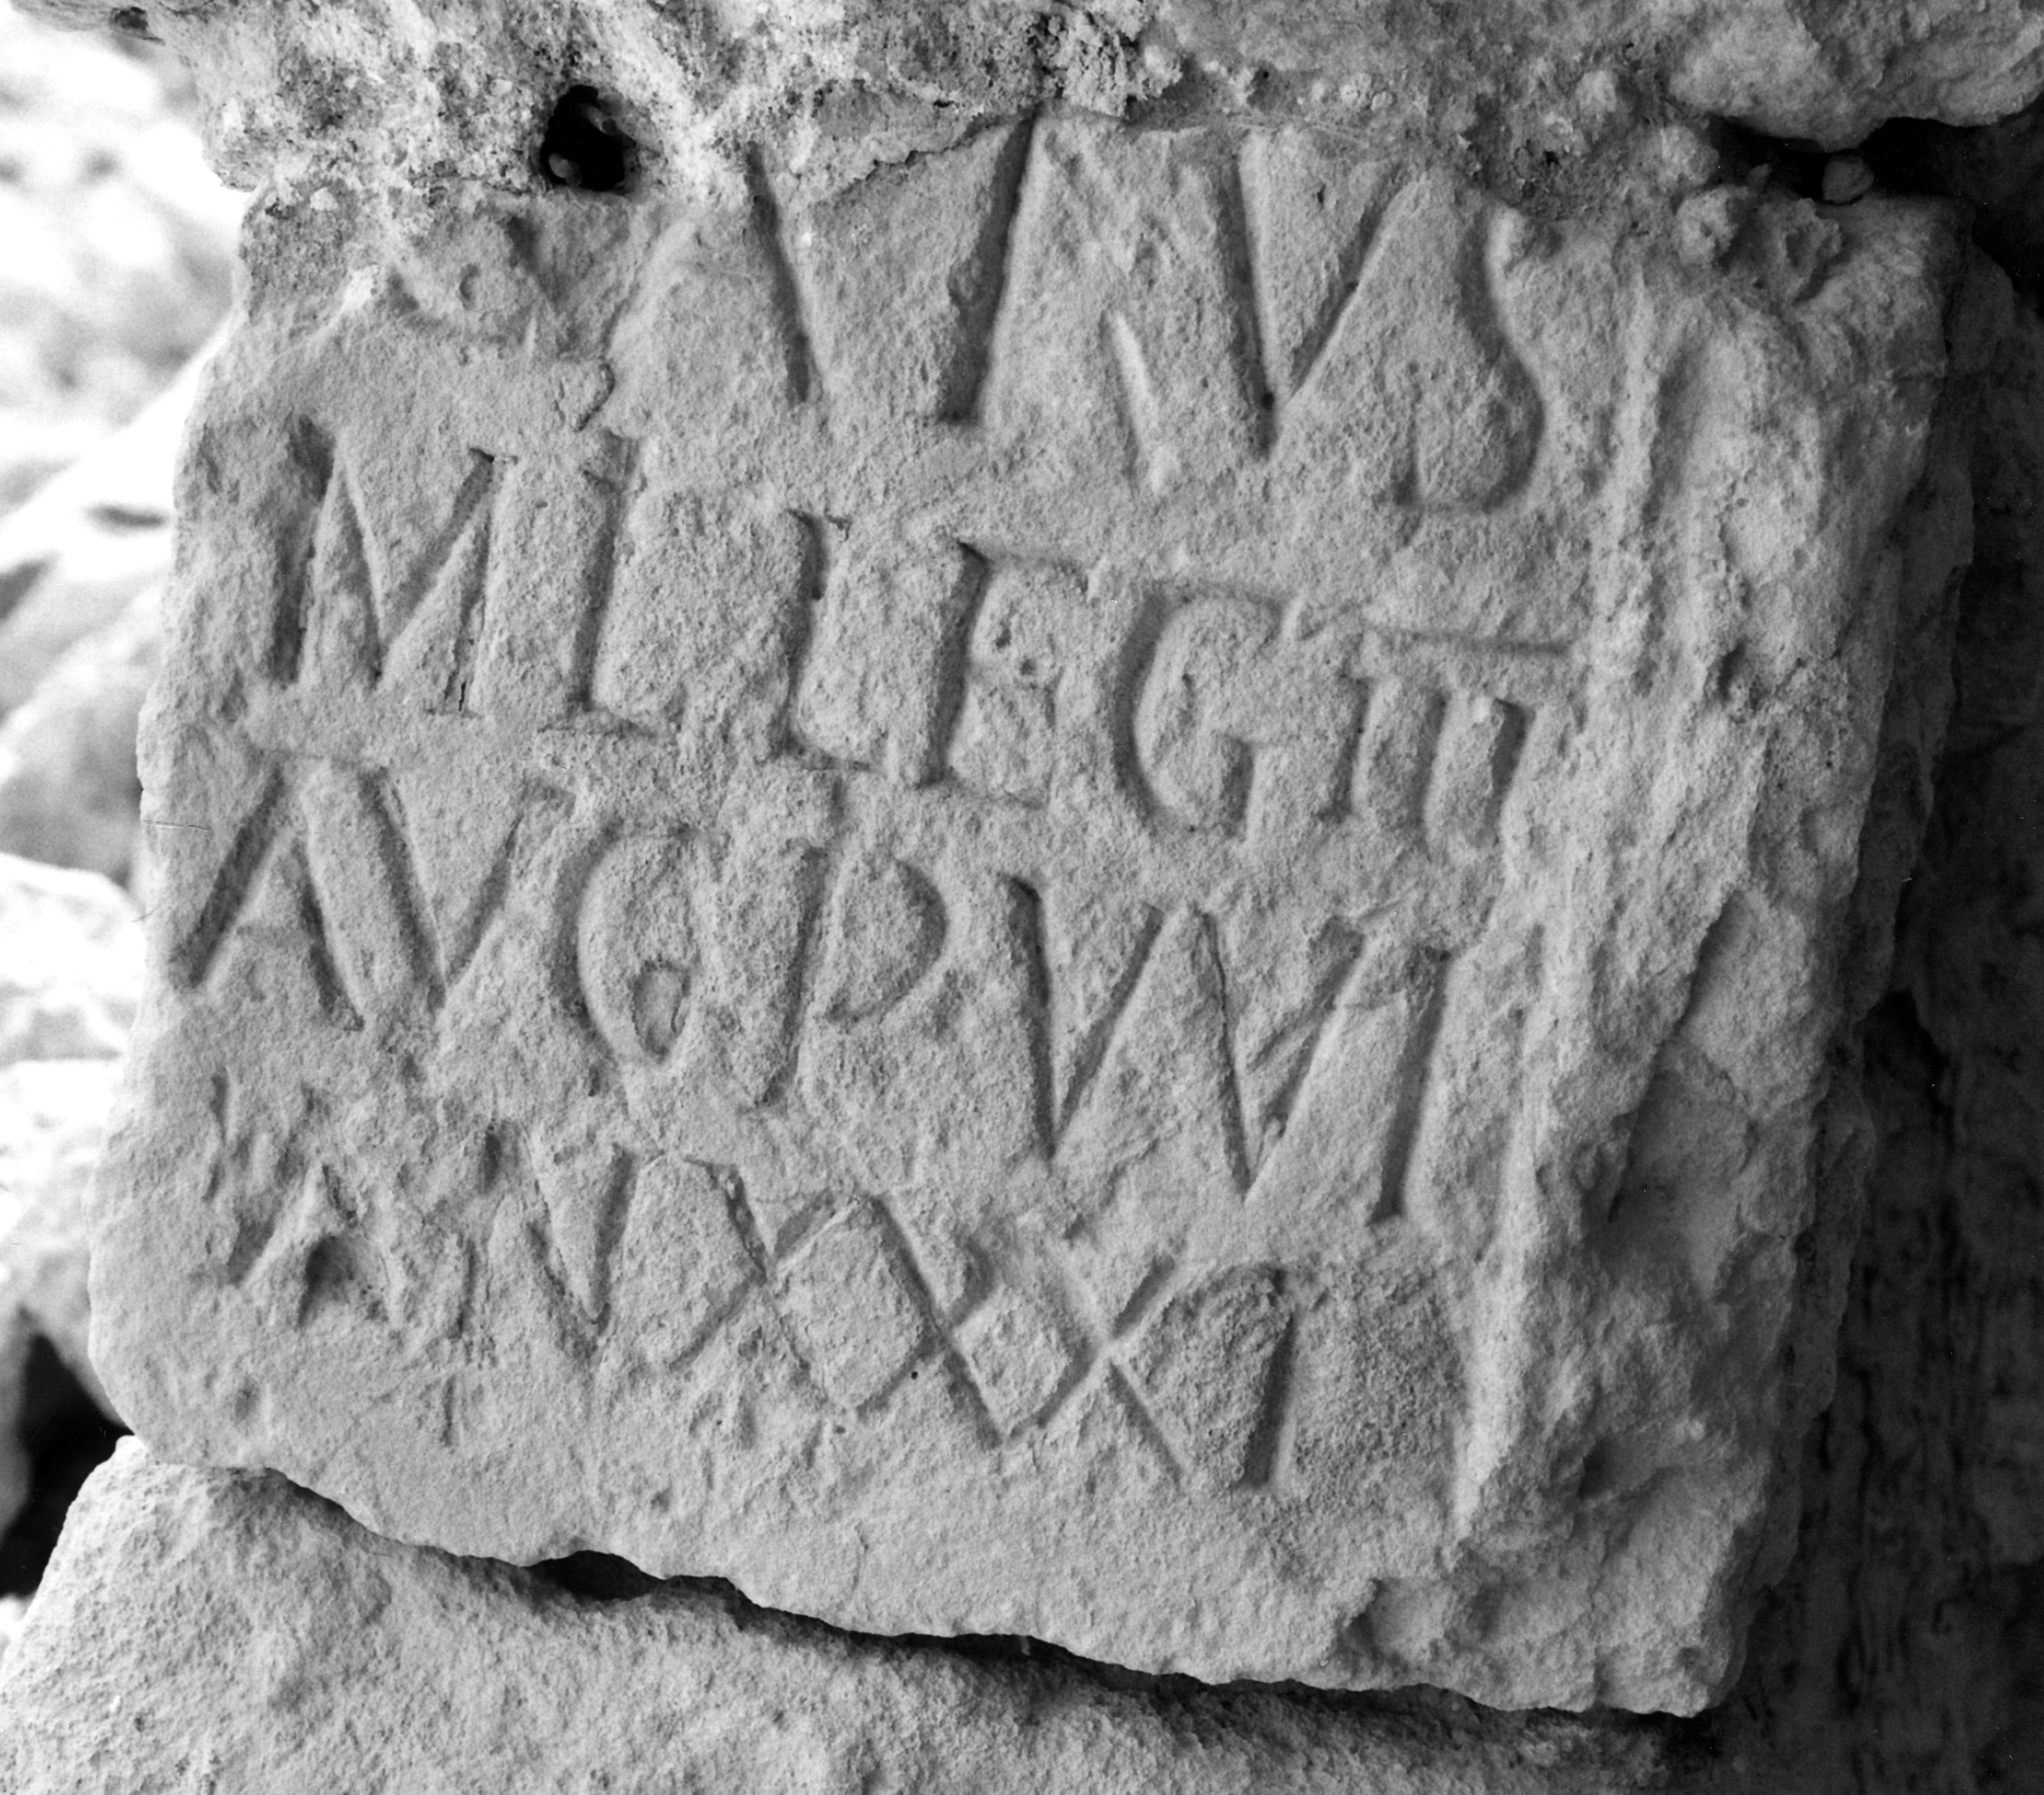 ANVS
MIL LEG III
AVG P V VI
ANN XXXI